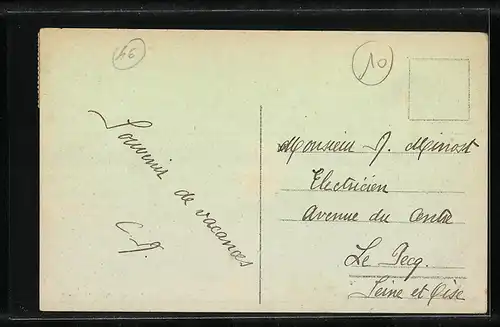 46
10
Souvenir de vacances
C. J.
Monsieur J. Minost
Electricien
Avenue du Centre
Le Pecq.
Seine et Oise